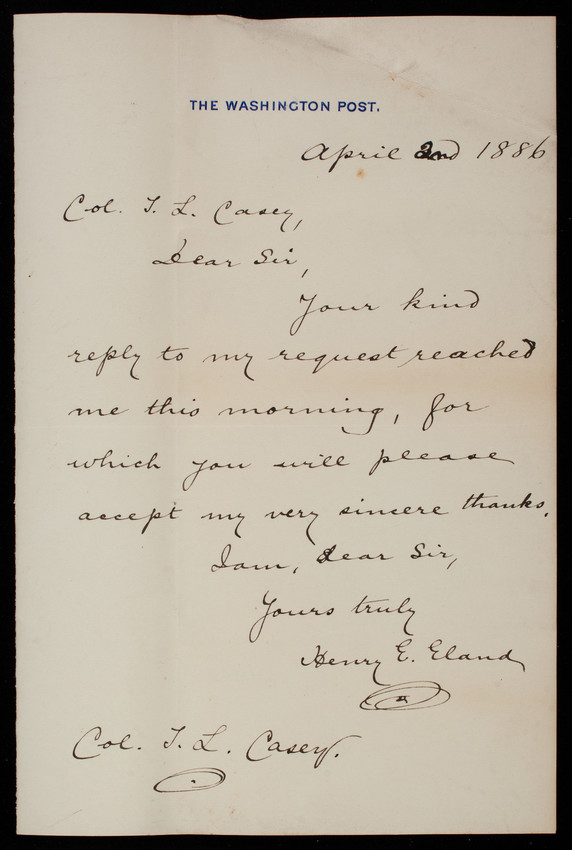 THE WASHINGTON POST.
April 2nd 1886
Col. T. L. Casey,
Dear Sir,
Your kind
reply to my request reached
me this morning, for
which you will please
accept my very sincere thanks.
I am, Dear Sir,
Yours truly
Henry E. Eland
Col. T. L. Casey.